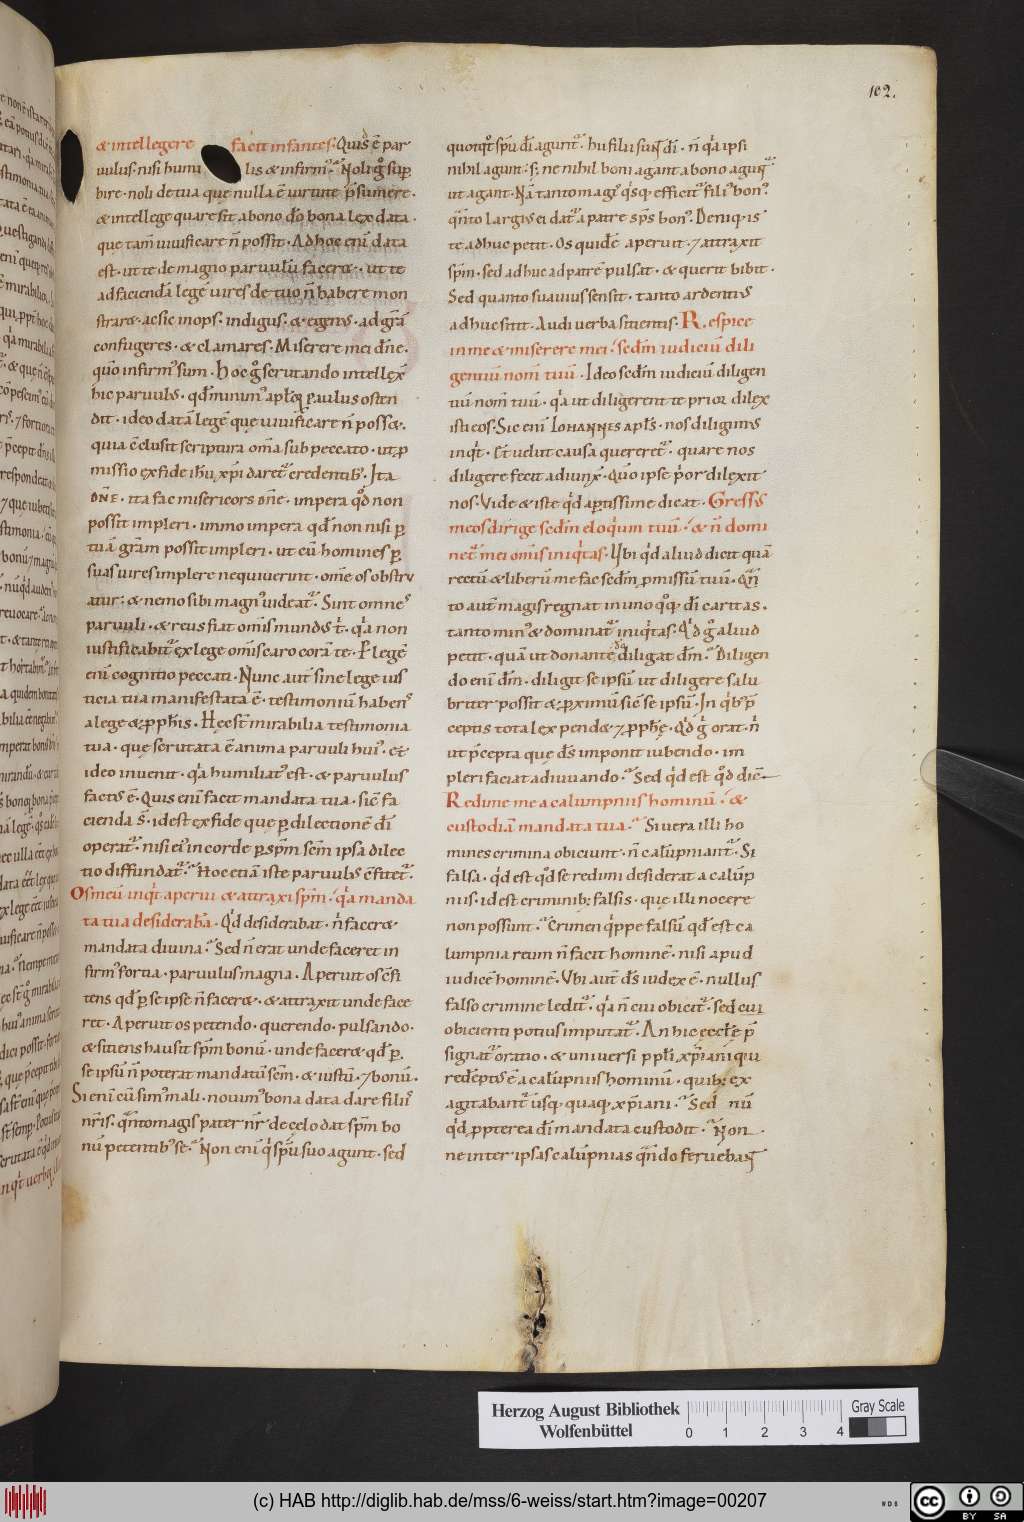 102.
& intellegere facit infantes. Quis ē par
uulus. nisi humilis & infirmꝰ. Noli gͦ suꝑ
bire. noli de tua que nulla ē uirtute p̄sumere.
& intellege quare sit a bono dō bona lex data.
que tam̄ uiuificare n̄ possit. Ad hoc eni data
est. ut te de magno paruulū facer&. ut te
ad faciendā legē uires de tuo n̄ habere mon
strar&. ac sic inops. indigus. & egenꝰ. ad grā
confugeres. & clamares. Miserere mei dn̄e.
qūo infirmꝰ sum. Hoc gͦ scrutando intellex̄
hic paruulꝰ. qđ minimꝰ apl̄oꝝ paulus osten
dit. ideo datā legē que uiuificare n̄ poss&.
quia c̄clusit scriptura om̄a sub peccato. ut ꝓ
missio ex fide ihū xp̄i daret credentibꝰ. Ita
dn̄e. ita fac misericors dn̄e. impera qđ non
possit impleri. immo impera qđ non nisi ꝑ
tuā grām possit impleri. ut cū homines ꝑ
suas uires implere nequiuerint. om̄e os obstru
atur. & nemo sibi magnꝰ uideat. Sint omnes
paruuli. & reus fiat om̄is mundꝰ t. qa non
iustificabit ex lege om̄is caro corā te. P legē
eni cognitio peccati. Nunc aut̄ sine lege ius
ticia tua manifestata ē. testimoniū habens
a lege & ꝓph̄is. Hec st̄ mirabilia testimonia
tua. que scrutata ē anima paruuli huiꝰ. et
ideo inuenit. qa humiliatꝰ est. & paruulus
factꝰ ē. Quis eni facit mandata tua. sic̄ fa
cienda st̄. id est ex fide que ꝑ dilectionē dī
operat. nisi ei in corde ꝑ sp̄m scm̄ ipsa dilec
tio diffundat. Hoc etiā iste paruulꝰ c̄fitet.
Os meū inqt aperui & attraxi sp̄m. qa manda
ta tua desiderabā. Qd desiderabat. n facer&
mandata diuina. Sed n̄ erat unde faceret in
firmꝰ fortia. paruulus magna. Aperuit os c̄fi
tens qđ ꝑ se ipse n̄ facer&. & attraxit unde face
ret. Aperuit os petendo. querendo. pulsando.
& sitiens hausit sp̄m bonū. unde facer& qđ ꝑ
se ipsū n̄ poterat mandatū scm̄. & iustū. ⁊ bonū.
Si eni cū simꝰ mali. nouimꝰ bona data dare filiis
nr̄is. qn̄to magis pater nr̄ de celo dat sp̄m bo
nū petentibꝰ se. Non eni q sp̄u suo agunt. sed
quotqt sp̄u dī agunt. hi filii sunt dī. n̄ qa ipsi
nihil agunt. s; ne nihil boni agant a bono agunt
ut agant. Nā tanto magꝭ qsq; efficit filiꝰ bonꝰ.
qn̄to largiꝰ ei dat a patre sp̄s bonꝰ. Deniq; is
te adhuc petit. Os quidē aperuit. ⁊ attraxit
sp̄m. sed adhuc ad patrē pulsat. & querit bibit.
Sed quanto suauius sensit. tanto ardentiꝰ
adhuc sitit. Audi uerba sitientis. Respice
in me & miserere mei. scdm̄ iudiciū dili
gentiū nom̄ tuū. Ideo scdm̄ iudiciū diligen
tiū nom̄ tuū. qa ut diligerent te prior dilex
isti eos. Sic eni Iohannes apl̄s. nos diligimꝰ
inqt. Et uelut causa quereret. quare nos
diligere fecit adiunx̄. Qūo ipse prior dilexit
nos. Vide & iste qd aptissime dicat. Gressꝰ
meos dirige scdm̄ eloqum tuū. & n̄ domi
net mei om̄is iniqtas. Ubi qd aliud dicit quā
rectū & liberū me fac scdm̄ ꝓmissū tuū. Qn̄
to aut̄ magis regnat in unoqoq; dī caritas.
tanto minꝰ & dominat iniqtas. Qd gͦ aliud
petit. quā ut donante dō diligat dm̄. Diligen
do eni dm̄. diligit se ipsū ut diligere salu
briter possit & ꝓximū sic̄ se ipsū. In qibꝰ p̄
ceptis tota lex pend& ⁊ ꝓph̄e. Qd g orat. n
ut p̄cepta que ds̄ imponit iubendo. im
pleri faciat adiuuando. Sed qd est qđ dic̄
Redime me a calumpniis hominū. &
custodiā mandata tua. Si uera illi ho
mines crimina obiciunt. n̄ calūpniant. Si
falsa. qd est qđ se redimi desiderat a calūp
niis. id est criminib; falsis. que illi nocere
non possunt. Crimen qppe falsū qđ est ca
lumpnia reum n̄ facit hominē. nisi apud
iudicē hominē. Vbi aut̄ ds̄ iudex ē. nullus
falso crimine ledit. qa n̄ cui obicit. sed cui
obicienti potius imputat. An hic eccl̄e p̄
signat oratio. & uniuersi ppl̄i xp̄iani qui
redēptꝰ ē a calūpniis hominū. quib; ex
agitabant usq; quaq; xp̄iani. Sed nū
qd ꝓpterea dī mandata custodit. Non
ne inter ipsas calūpnias qn̄do feruebant
Herzog August Bibliothek
Wolfenbüttel
0 1 2 3 4
Gray Scale
(c) HAB http://diglib.hab.de/mss/6-weiss/start.htm?image=00207
WDB
cc BY SA